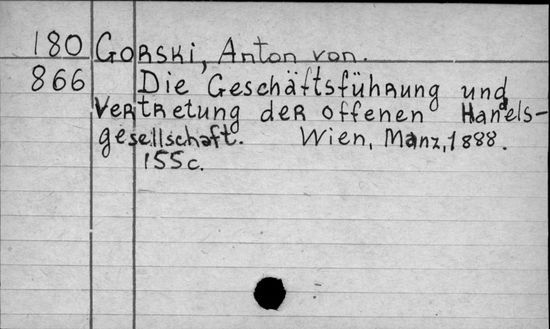 180 Gorski, Anton von.
866 Die Geschäftsführung und
Vertretung der offenen Handels-
gesellschaft. Wien, Manz, 1888.
155c.